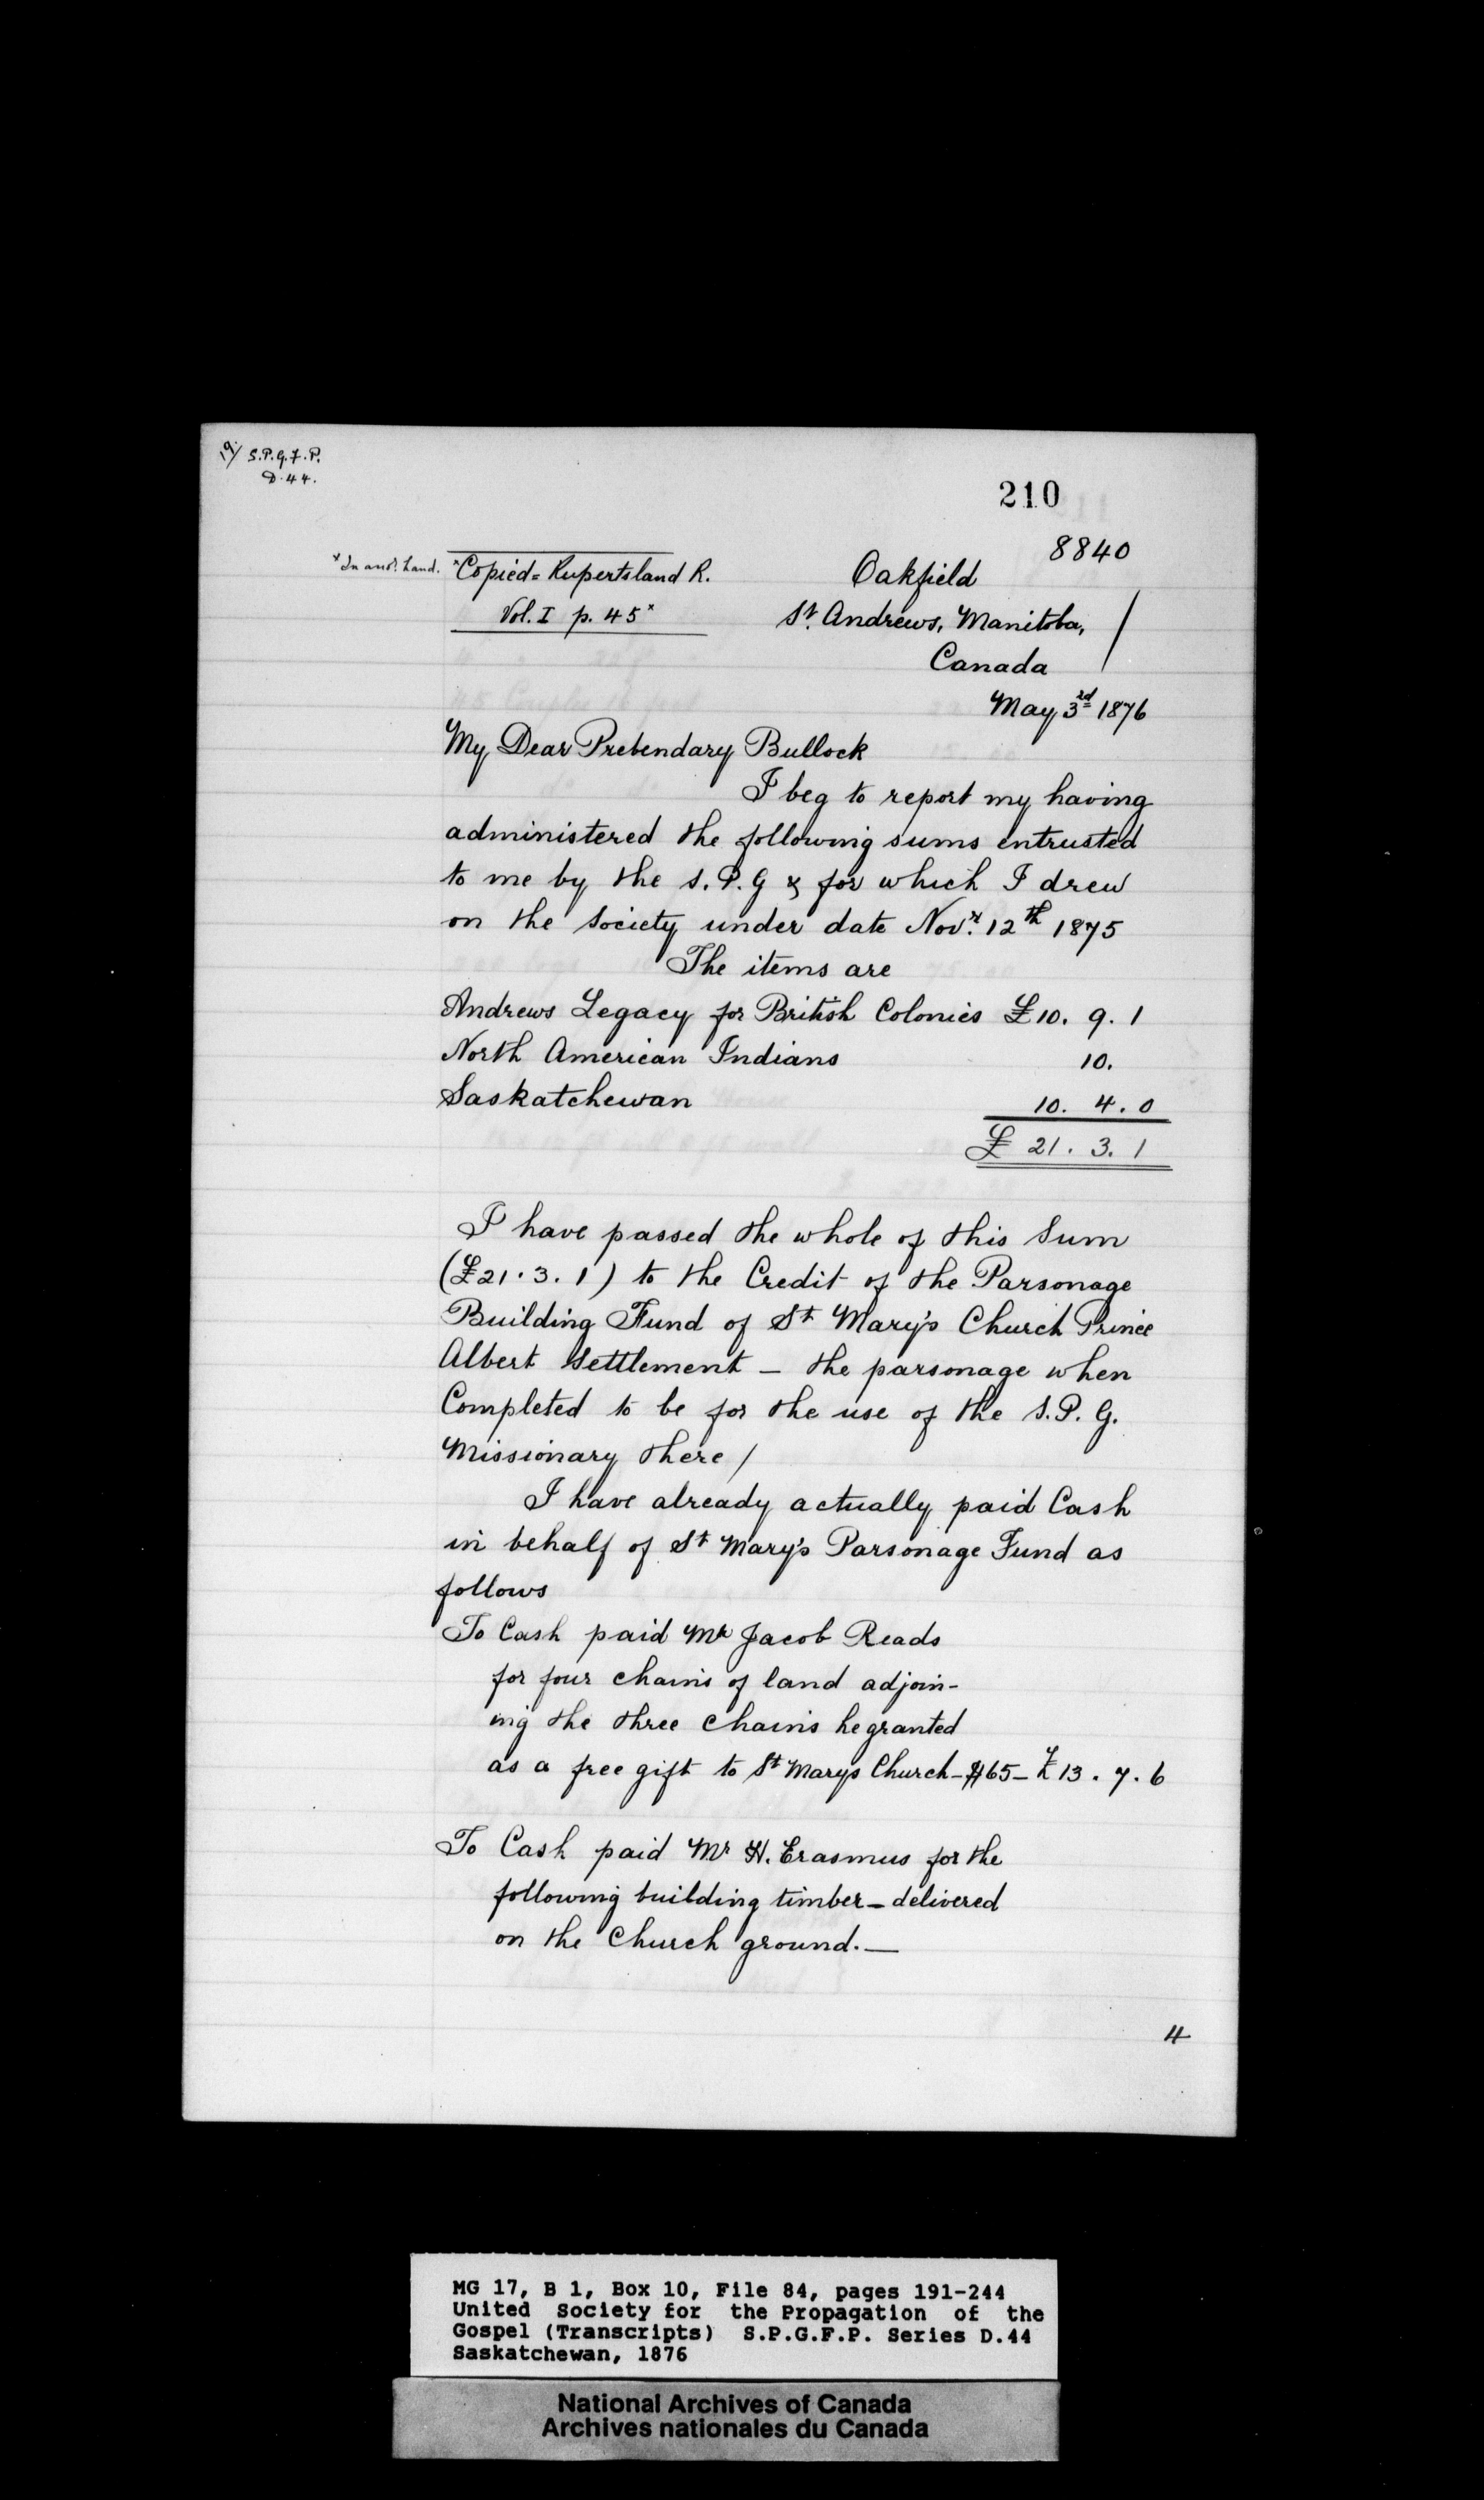 S.P.G.F.P.
D.44.
210
8840
x In anor. hand. xCopied = Rupertsland R.
Vol. I p. 45x
Oakfield
St. Andrews, Manitoba,
Canada
May 3rd 1876
My Dear Prebendary Bullock
I beg to report my having
administered the following sums entrusted
to me by the S.P.G & for which I drew
on the Society under date Novr. 12th 1875
The items are
Andrews Legacy for British Colonies £10. 9. 1
North American Indians 10.
Saskatchewan 10. 4. 0
£ 21. 3. 1
I have passed the whole of this Sum
(£21. 3. 1) to the Credit of the Parsonage
Building Fund of St Mary's Church Prince
Albert Settlement — the parsonage when
Completed to be for the use of the S.P.G.
Missionary there /
I have already actually paid Cash
in behalf of St Mary's Parsonage Fund as
follows
To Cash paid Mr Jacob Reads
for four chains of land adjoin-
ing the three chains he granted
as a free gift to St Marys Church – $65 – £13. 7. 6
To Cash paid Mr H. Erasmus for the
following building timber – delivered
on the Church ground. —
4
MG 17, B 1, Box 10, File 84, pages 191-244
United Society for the Propagation of the
Gospel (Transcripts) S.P.G.F.P. Series D.44
Saskatchewan, 1876
National Archives of Canada
Archives nationales du Canada